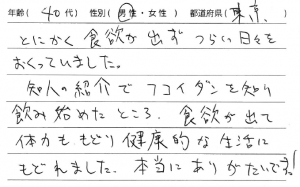 年齢( 40代) 性別(男性・女性) 都道府県(東京)
とにかく食欲が出ずつらい日々を
おくっていました。
知人の紹介でフコイダンを知り
飲み始めたところ、食欲が出て
体力ももどり健康的な生活に
もどれました。本当にありがたいです。